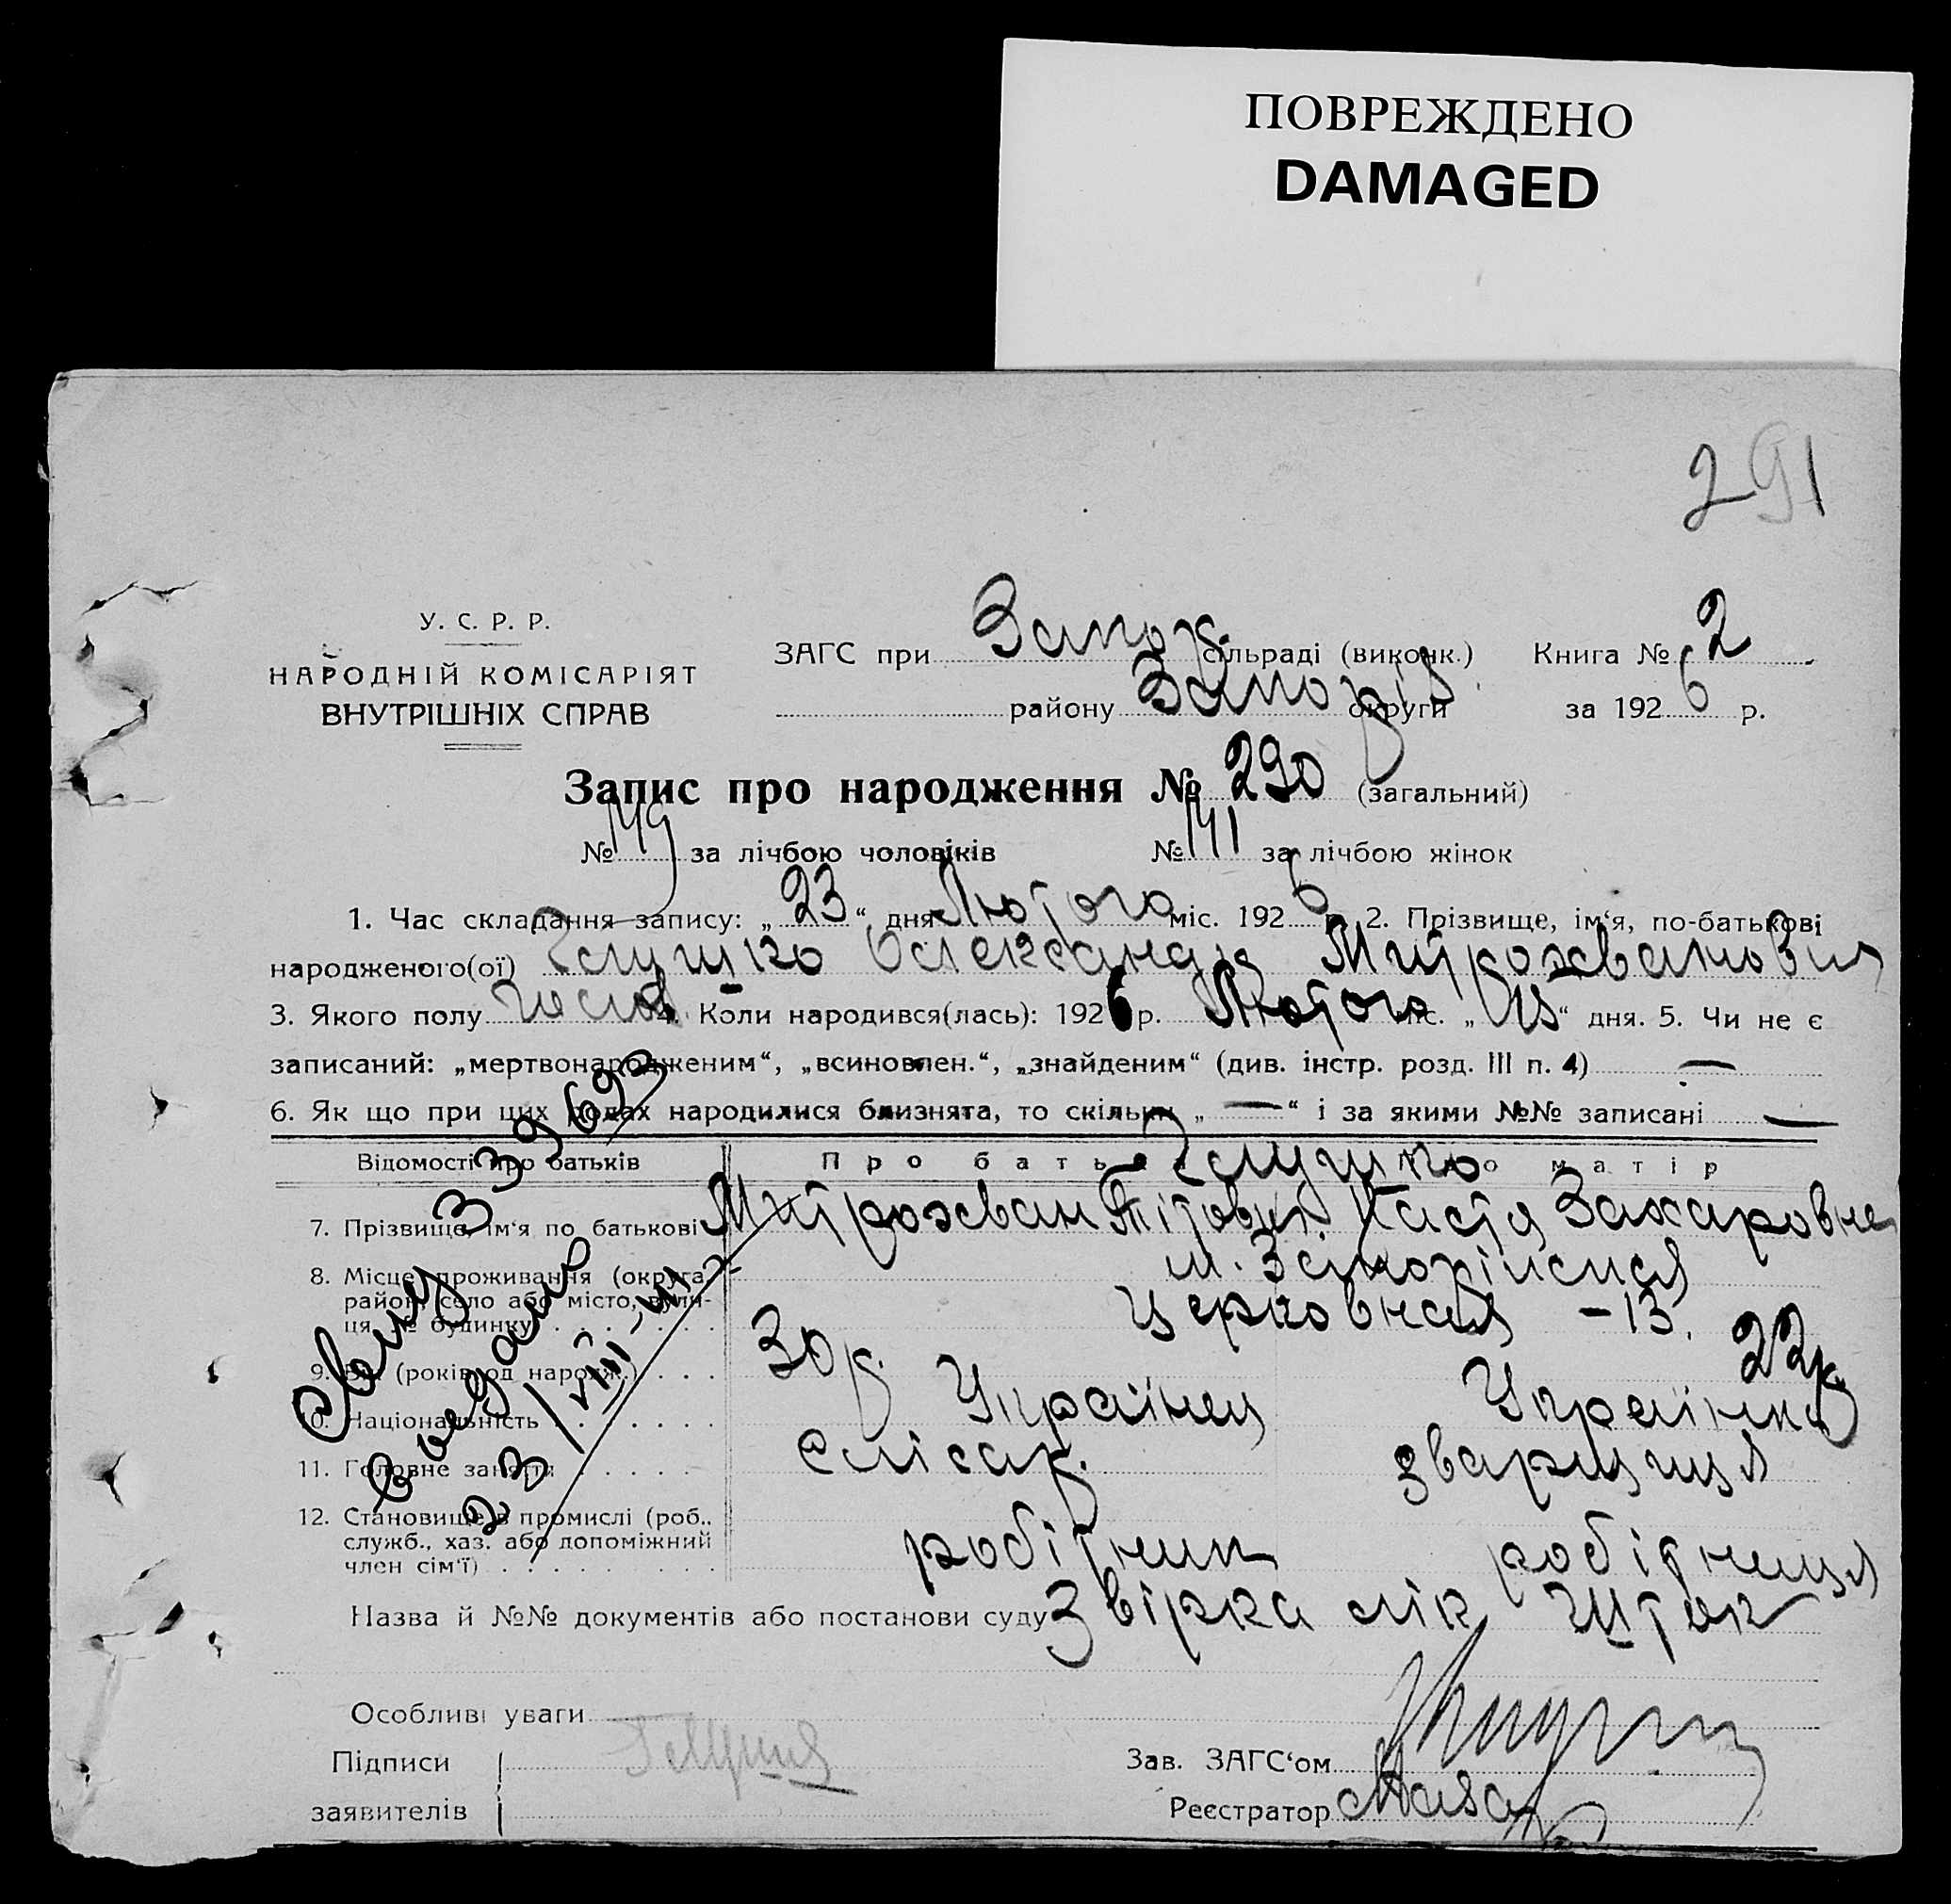 ПОВРЕЖДЕНО
DAMAGED
291
У. С. Р. Р.
НАРОДНІЙ КОМІСАРІЯТ
ВНУТРІШНІХ СПРАВ
ЗАГС при Запор. сільраді (виконк.) Книга № 2
району Запоріз округи за 1926 р.
Запис про народження № 290 (загальний)
№ 149 за лічбою чоловіків № 141 за лічбою жінок
1. Час складання запису: „23“ дня Лютого міс. 1926 р. 2. Прізвище, ім‘я, по-батькові
народженого(ої) Глушко Олександр
3. Якого полу 4. Коли народився(лась): 1926 р. Лютого міс. „ “ дня. 5. Чи не є
записаний: „мертвонародженим“, „всиновлен.“, „знайденим“ (див. інстр. розд. III п. 4) —
6. Як що при цих родах народилися близнята, то скільки „—“ і за якими №№ записані —
Відомості про батьків Про батька Про матір
Глушко
7. Прізвище, ім‘я по батькові Митрохван Тітович Настя Захаровна
8. Місце проживання (округа,
район, село або місто, вули-
ця, № будинку) . . . . . . .
м.
Церковная – 13.
9. Вік (років од народж.) . . . 30 р. 22 р.
10. Національність . . . . . . Українец Українка
11. Головне заняття . . . . . слісар. зварщиця
12. Становище в промислі (роб.,
служб., хаз. або допоміжний
член сім‘ї) . . . . . . . . .
робітник робітниця
Назва й №№ документів або постанови суду Звірка лік
Особливі уваги
Підписи
заявителів
Зав. ЗАГС‘ом
Реєстратор
33969
23/VIII-41